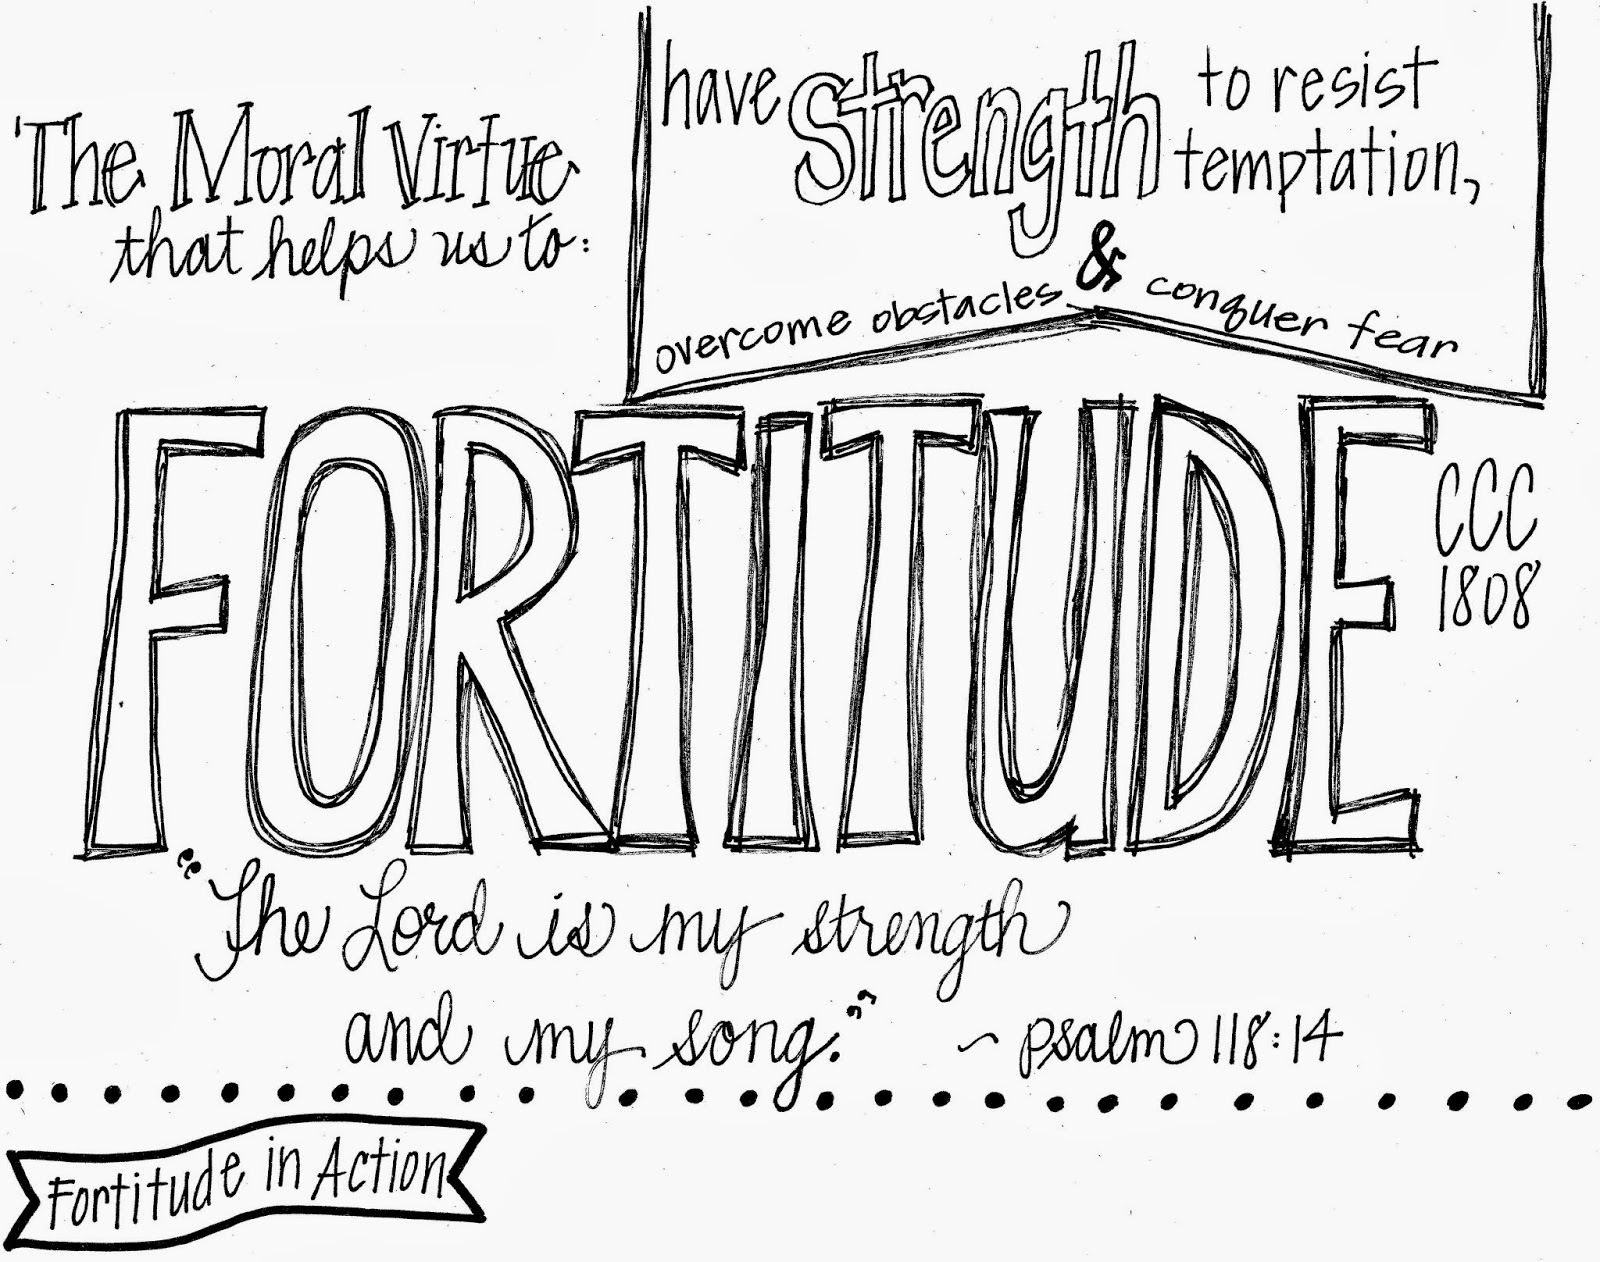 The Moral Virtue
that helps us to:
have strength to resist
temptation,
overcome obstacles & conquer fear
FORTITUDE
CCC
1808
"The Lord is my strength
and my song."
~ psalm 118:14
Fortitude in Action